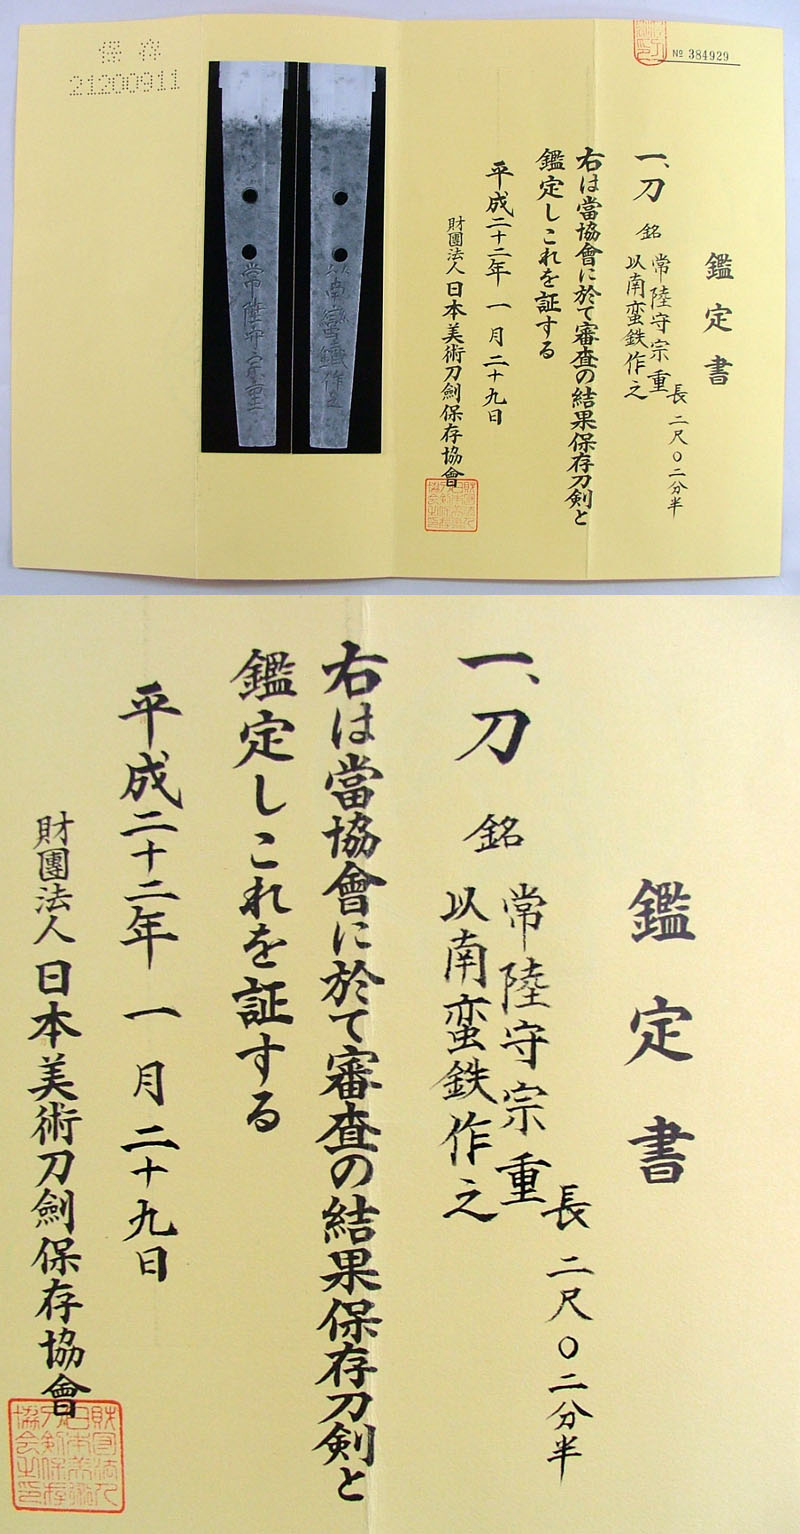 保存
21200911
常陸守宗重
南蠻鐵作之
№ 384929
鑑定書
一、刀 銘 常陸守宗重
以南蛮鉄作之
長 二尺〇二分半
右は當協會に於て審査の結果保存刀剣と
鑑定しこれを証する
平成二十二年 一月 二十九日
財團法人 日本美術刀劍保存協會
鑑定書
一、刀 銘 常陸守宗重
以南蛮鉄作之
長 二尺〇二分半
右は當協會に於て審査の結果保存刀剣と
鑑定しこれを証する
平成二十二年 一月 二十九日
財團法人 日本美術刀劍保存協會
財団法人
日本美術
刀剣保存
協会之印